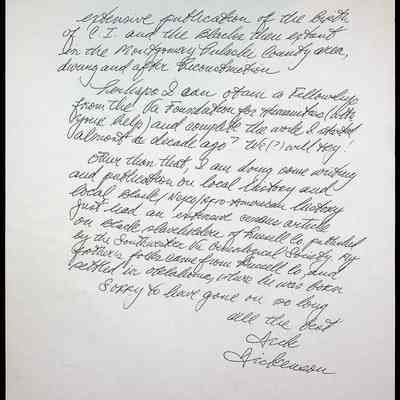 extensive publication of the birth
of C.I. and the blacks then extant
in the Montgomery Pulaski County area,
during and after Reconstruction
Perhaps I can obtain a Fellowship
from the Va Foundation for Humanities (with
your help) and complete the work I started
almost a decade ago? We(?) will try!
Other than that, I am doing some writing
and publication on local history and
local Black/Negro/Afro-American history
just had an extensive article
on black slaveholders of Russell Co, published
by the Southwestern Va Genealogical Society. My
father's folks came from Russell Co, and
settled in Oklahoma, where he was born
Sorry to have gone on so long
All the best
Dickenson